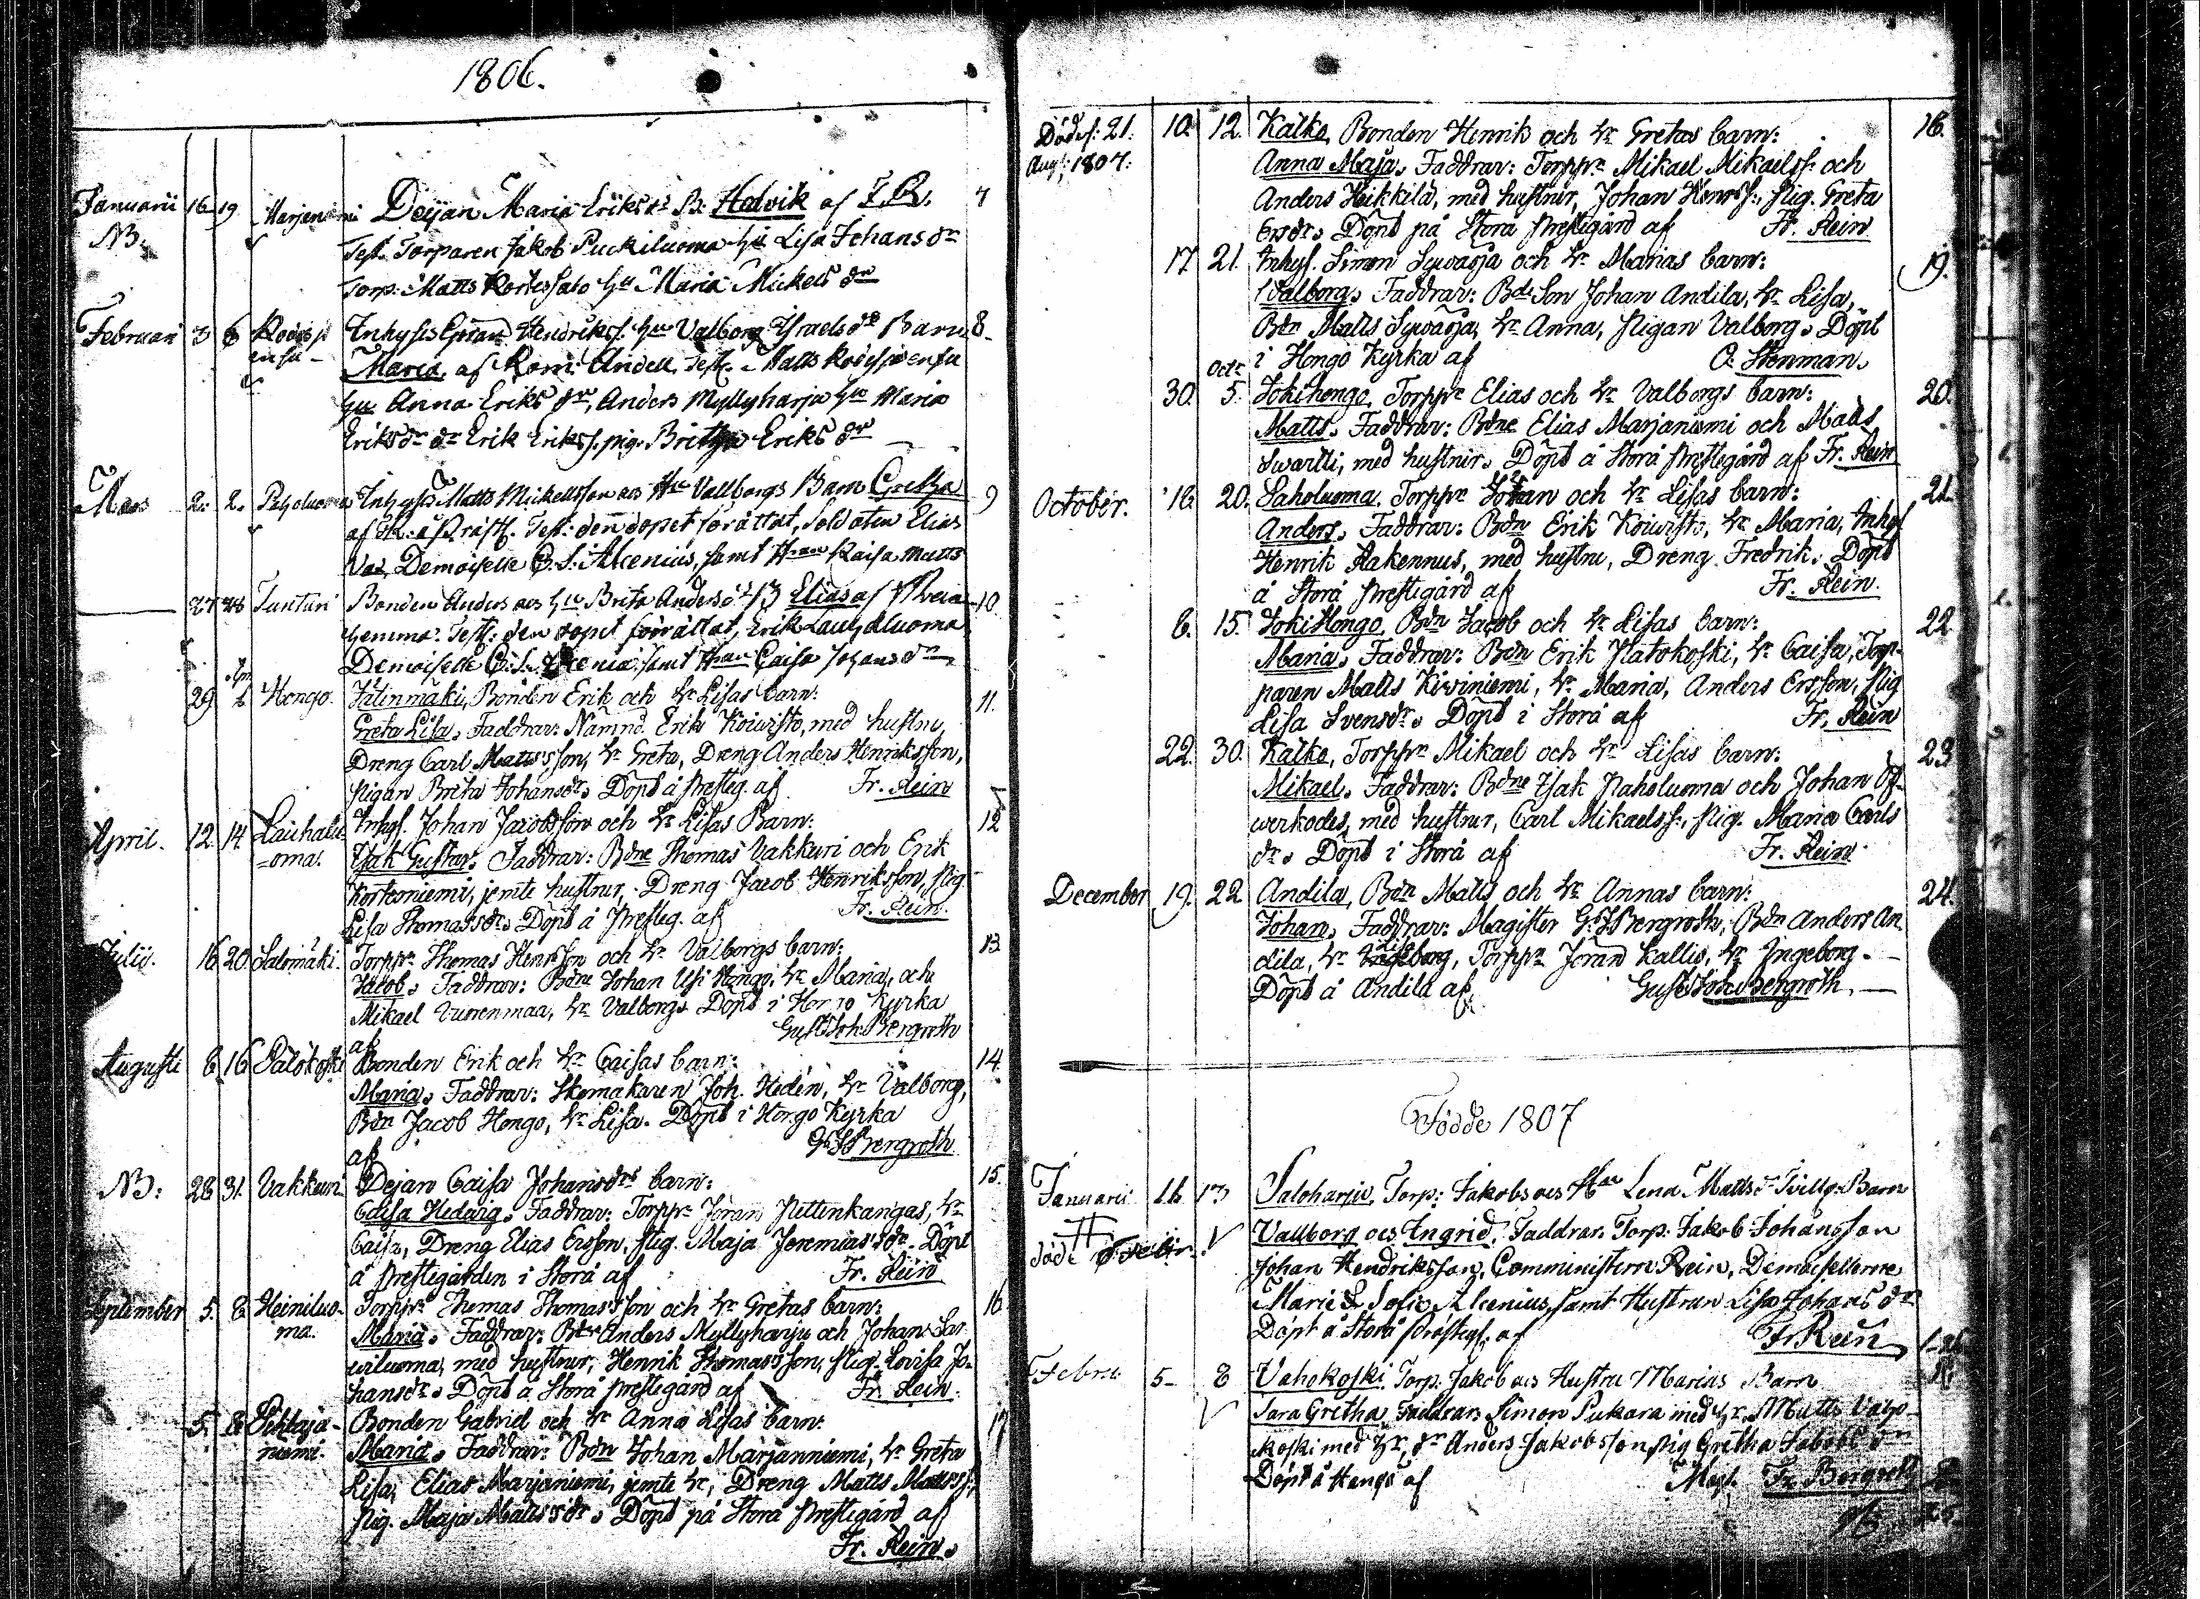 1806.
Januarii 16 19 Marjeniemi Deijan Maria Eriks dr B. Hedvik af F. R. 7
NB: Test. Torparen Jakob Puckiluoma hu Lisa Johans dr
Torp: Matts hu Maria Mickels dr
Februari 3 6 Inhyses Hendrikss. hu Valborg Israels dr Barn 8
Maria af Test. Matts
hu Anna Eriks dr, Anders Myllyharju hu Maria
Eriks dr Erik Erikss. pig. Britha Eriks dr
Mars 2. 2. Inhyses Matts Mickelsson och Hu Vallborgs Barn Gretha 9
Test: den dopet förrättat, Soldaten Elias
Demoiselle C. S. Alcenius, samt Hrun Kaisa Matts
27 28 Tuuturi Bonden Anders och hu Brita Anders dr B Elias af 10.
hemma. Test: den dopet förrättat, Erik Lauhaluoma
Demoiselle samt Hrun Caisa Johans dr
Apr.
29 Hongo. Jätinmäki, Bonden Erik och hr Lisas barn: 11.
Greta Lisa. Faddrar: Nämnd. Erik Koivisto, med hustru,
Dreng Carl Mattsson, hr Greta, Dreng Anders Henriksson,
Pigan Brita Johansdr. Döpt å Presteg. af Fr. Rein
April. 12. 14 Lauhalu- Inhys. Johan Jacobsson och hr Lisas Barn: 12
=oma. Isak Gustav. Faddrar: Bdne Thomas Vakkuri och Erik
Korkesniemi, jemte hustrur, Dreng Jacob Henriksson, Pig.
Lisa Thomassdr. Döpt å Presteg. af Fr. Rein.
Julii. 16 20 Salomäki. Torppr Thomas Henrsson och hr Valborgs barn: 13
Jacob. Faddrar: Bdne Johan Usi Hongo, hr Maria, och
Mikael Vuorenmaa, hr Valborg. Döpt i Hongo Kyrka
af Gust Joh Bergroth
Augusti 8 16 Palokoski Bonden Erik och hr Caisas barn: 14
Maria. Faddrar: Skomakaren Joh. Hedén, hr Valborg,
Bdn Jacob Hongo, hr Lisa. Döpt i Hongo Kyrka
af G J Bergroth
NB: 28 31. Vakkuri Dejan Caisa Johansdrs barn: 15.
Caisa Hedvig. Faddrar: Torppr Jöran Pettenkangas, hr
Caisa, Dreng Elias Ersson, Pig. Maja Jeremiasdr. Döpt
å Prestegården i Storå af Fr. Rein
September 5. 8 Heiniluo- Torppr Thomas Thomasson och hr Gretas barn: 16
ma. Maria. Faddrar: Bdr Anders Myllyharju och Johan Sar-
viluoma, med hustrur, Henrik Thomasson, Pig. Lovisa Jo-
hansdr. Döpt å Storå Prestegård af Fr. Rein.
5. 8 Pehkaja- Bonden Gabriel och hr Anna Lisas barn: 17
niemi. Maria. Faddrar: Bdn Johan Marjanniemi, hr Greta
Lisa, Elias Marjaniemi, jemte hr, Dreng Matts Mattss.,
Pig. Maja Mattsdr. Döpt på Storå Prestegård af
Fr. Rein.
Död d. 21. 10. 12. Kalko, Bonden Henrik och hr Gretas barn: 18.
Aug. 1807. Anna Maja. Faddrar: Torppr Mikael Mikaelss. och
Anders Heikkilä, med hustrur, Johan Henrss., Pig. Greta
Ersdr. Döpt på Storå Prestegård af Fr. Rein
17 21. Inhys. Simon Sywärja och hr Marias barn: 19.
Valborg. Faddrar: Bde Son Johan Andila, hr Lisa,
Bdn Matts Sywärja, hr Anna, Pigan Valborg. Döpt
i Hongo Kyrka af O. Stenman.
Octr
30. 5. Jokihongo, Torppr Elias och hr Valborgs barn: 20.
Matts. Faddrar: Bdne Elias Marjaniemi och Matts
Swartti, med hustrur. Döpt å Storå Prestegård af Fr. Rein
October. 16 20. Saholuoma. Torppr Johan och hr Lisas barn: 21.
Anders. Faddrar: Bdn Erik Koivisto, hr Maria, Inhys
Henrik Rakennus, med hustru, Dreng Fredrik. Döpt
å Storå Prestegård af Fr. Rein.
6. 15. Jokihongo, Bdn Jacob och hr Lisas barn: 22
Maria. Faddrar: Bdn Erik Platokoski, hr Caisa, Torp-
paren Matts Kiviniemi, hr Maria, Anders Ersson, Pig
Lisa Svensdr. Döpt i Storå af Fr. Rein
22. 30. Kalko, Torppr Mikael och hr Lisas barn: 23
Mikael. Faddrar: Bdne Isak Paholuoma och Johan Öf-
werkodes, med hustrur, Carl Mikaelss., Pig. Maria Carls
dr. Döpt i Storå af Fr. Rein.
December 19. 22 Andila, Bdn Matts och hr Annas barn: 24.
Johan. Faddrar: Magister G. J Bergroth, Bdn Anders An-
dila, hr Lisa, Torppr Jöran Kallis, hr Ingeborg.
Döpt å Andila af Gust Joh Bergroth.
Födde 1807
Januarii 11. 13 Saloharju, Torp: Jakobs och Hus Lena Matts dr Tvilling Barn
Vallborg och Ingrid, Faddrar. Torp. Jakob Johansson
Johan Hendriksson, Comministern Rein, Demoisellerne
Marie & Sofie Alcenius, samt Hustrun Lisa Johans dr
Döpt å Storå Prästeg. af Fr Rein
Febru 5 8 Vahokoski Torp. Jakob och Hustru Marias Barn
Sara Gretha, Faddrar. Simon Pukara med hr. Matts Vaho-
koski med hr, dr Anders Jakobsson pig Gretha Jakobs dr
Döpt å Hongo af Mag. Fr. Bergroth